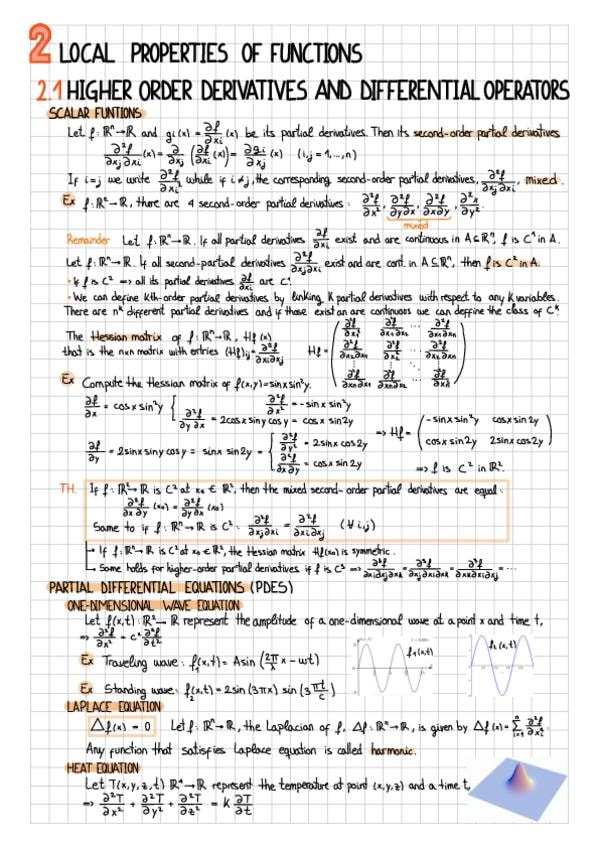 2 LOCAL PROPERTIES OF FUNCTIONS
2.1 HIGHER ORDER DERIVATIVES AND DIFFERENTIAL OPERATORS
SCALAR FUNTIONS
Let f: ℝⁿ→ℝ and gᵢ(x) = ∂f/∂xᵢ (x) be its partial derivatives. Then its second-order partial derivatives
∂²f/∂xⱼ∂xᵢ (x) = ∂/∂xⱼ (∂f/∂xᵢ (x)) = ∂gᵢ/∂xⱼ (x) (i,j = 1,...,n)
If i=j we write ∂²f/∂xᵢ² while if i≠j, the corresponding second-order partial derivatives, ∂²f/∂xⱼ∂xᵢ, mixed.
Ex f: ℝ²→ℝ, there are 4 second-order partial derivatives: ∂²f/∂x², ∂²f/∂y∂x, ∂²f/∂x∂y, ∂²x/∂y².
mixed
Remainder Let f: ℝⁿ→ℝ. If all partial derivatives ∂f/∂xᵢ exist and are continuous in A⊆ℝⁿ, f is C¹ in A.
Let f: ℝⁿ→ℝ. If all second-partial derivatives ∂²f/∂xⱼ∂xᵢ exist and are cont. in A⊆ℝⁿ, then f is C² in A.
• If f is C² ⟹ all its partial derivatives ∂f/∂xᵢ are C¹.
• We can define kth-order partial derivatives by linking K partial derivatives with respect to any K variables.
There are nᵏ different partial derivatives and if those exist an are continuous we can deffine the class of Cᵏ.
The Hessian matrix of f: ℝⁿ→ℝ, Hf(x)
that is the nxn matrix with entries (Hf)ᵢⱼ = ∂²f/∂xᵢ∂xⱼ Hf =
Ex Compute the Hessian matrix of f(x,y)=sinx sin²y.
∂f/∂x = cosx sin²y { ∂²f/∂x² = -sinx sin²y
∂²f/∂y∂x = 2cosx siny cosy = cosx sin2y
⟹ Hf = ( -sinx sin²y cosx sin2y
cosx sin2y 2sinx cos2y )
∂f/∂y = 2sinx siny cosy = sinx sin2y = { ∂²f/∂y² = 2sinx cos2y
∂²f/∂x∂y = cosx sin2y
⟹ f is C² in ℝ².
TH. If f: ℝ²→ℝ is C² at x₀ ∈ ℝ², then the mixed second-order partial derivatives are equal:
∂²f/∂x∂y (x₀) = ∂²f/∂y∂x (x₀)
Same to if f: ℝⁿ→ℝ is C²: ∂²f/∂xⱼ∂xᵢ = ∂²f/∂xᵢ∂xⱼ (∀ i,j)
↳ If f: ℝⁿ→ℝ is C² at x₀ ∈ ℝ², the Hessian matrix Hf(x₀) is symmetric.
↳ Same holds for higher-order partial derivatives if f is C³ ⟹ ∂³f/∂xᵢ∂xⱼ∂xₖ = ∂³f/∂xⱼ∂xᵢ∂xₖ = ∂³f/∂xₖ∂xᵢ∂xⱼ = ...
PARTIAL DIFFERENTIAL EQUATIONS (PDES)
ONE-DIMENSIONAL WAVE EQUATION
Let f(x,t): ℝ²→ℝ represent the amplitude of a one-dimensional wave at a point x and time t,
⟹ ∂²f/∂x² = c² ∂²f/∂t²
Ex Traveling wave: f₁(x,t) = A sin (2π/λ x - ωt)
f₁(x,t)
f₂(x,t)
Ex Standing wave: f₂(x,t) = 2sin (3πx) sin (3 πt/c)
LAPLACE EQUATION
△f(x) = 0 Let f: ℝⁿ→ℝ, the Laplacian of f, △f: ℝⁿ→ℝ, is given by △f(x) = Σⁿᵢ₌₁ ∂²f/∂xᵢ².
Any function that satisfies Laplace equation is called harmonic.
HEAT EQUATION
Let T(x,y,z,t) ℝ⁴→ℝ represent the temperature at point (x,y,z) and a time t,
⟹ ∂²T/∂x² + ∂²T/∂y² + ∂²T/∂z² = K ∂T/∂t